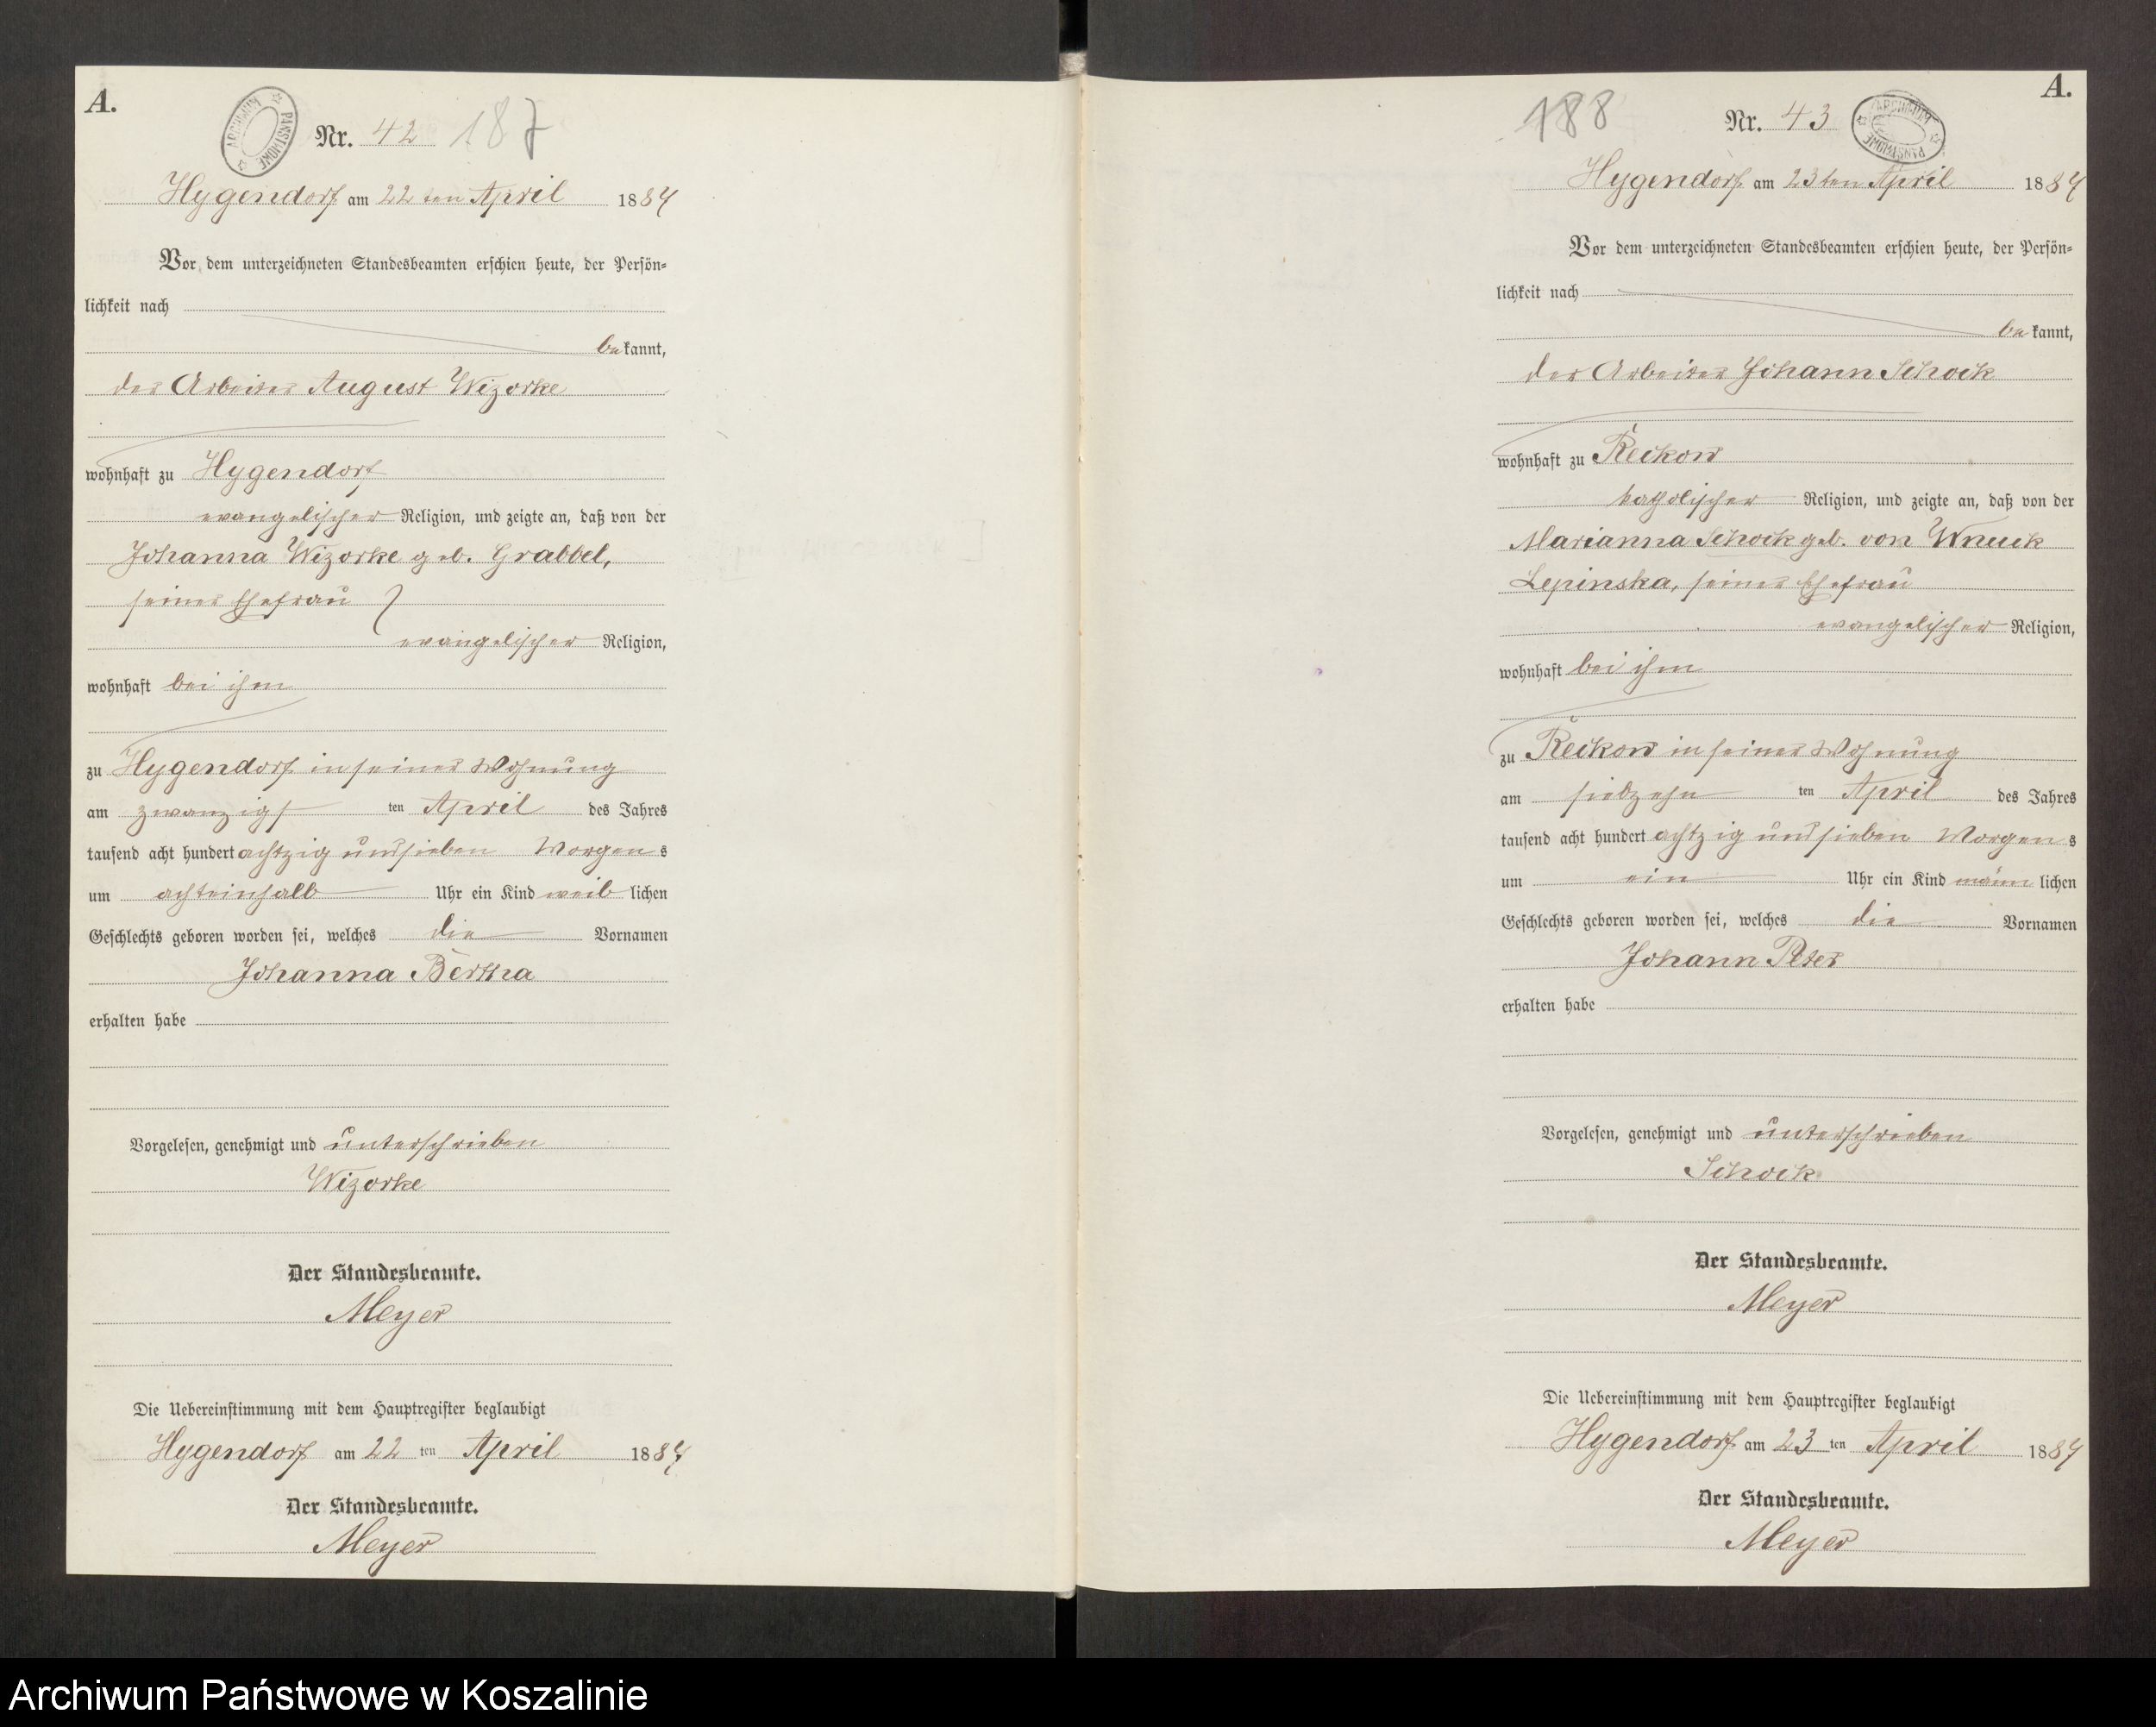 A.
ARCHIWUM PAŃSTWOWE
Nr. 42 187
Hygendorf am 22 ten April 1887
Vor dem unterzeichneten Standesbeamten erschien heute, der Persön=
lichkeit nach
bekannt,
der Arbeiter August Wizorke
wohnhaft zu Hygendorf
evangelischer Religion, und zeigte an, daß von der
Johanna Wizorke geb. Grabbel,
seiner Ehefrau
evangelischer Religion,
wohnhaft bei ihm
zu Hygendorf in seiner Wohnung
am zwanzigsten April des Jahres
tausend acht hundert achtzig und sieben Morgens
um achteinhalb Uhr ein Kind weiblichen
Geschlechts geboren worden sei, welches die Vornamen
Johanna Bertha
erhalten habe
Vorgelesen, genehmigt und unterschrieben
Wizorke
Der Standesbeamte.
Meyer
Die Uebereinstimmung mit dem Hauptregister beglaubigt
Hygendorf am 22 ten April 1887
Der Standesbeamte.
Meyer
A.
188 Nr. 43
ARCHIWUM PAŃSTWOWE
Hygendorf am 23 ten April 1887
Vor dem unterzeichneten Standesbeamten erschien heute, der Persön=
lichkeit nach
bekannt,
der Arbeiter Johann Schock
wohnhaft zu Reckow
katholischer Religion, und zeigte an, daß von der
Marianna Schock geb. von Wnuck
Lepinska, seiner Ehefrau
evangelischer Religion,
wohnhaft bei ihm
zu Reckow in seiner Wohnung
am siebzehn ten April des Jahres
tausend acht hundert achtzig und sieben Morgens
um ein Uhr ein Kind männlichen
Geschlechts geboren worden sei, welches die Vornamen
Johann Peter
erhalten habe
Vorgelesen, genehmigt und unterschrieben
Schock
Der Standesbeamte.
Meyer
Die Uebereinstimmung mit dem Hauptregister beglaubigt
Hygendorf am 23 ten April 1887
Der Standesbeamte.
Meyer
Archiwum Państwowe w Koszalinie